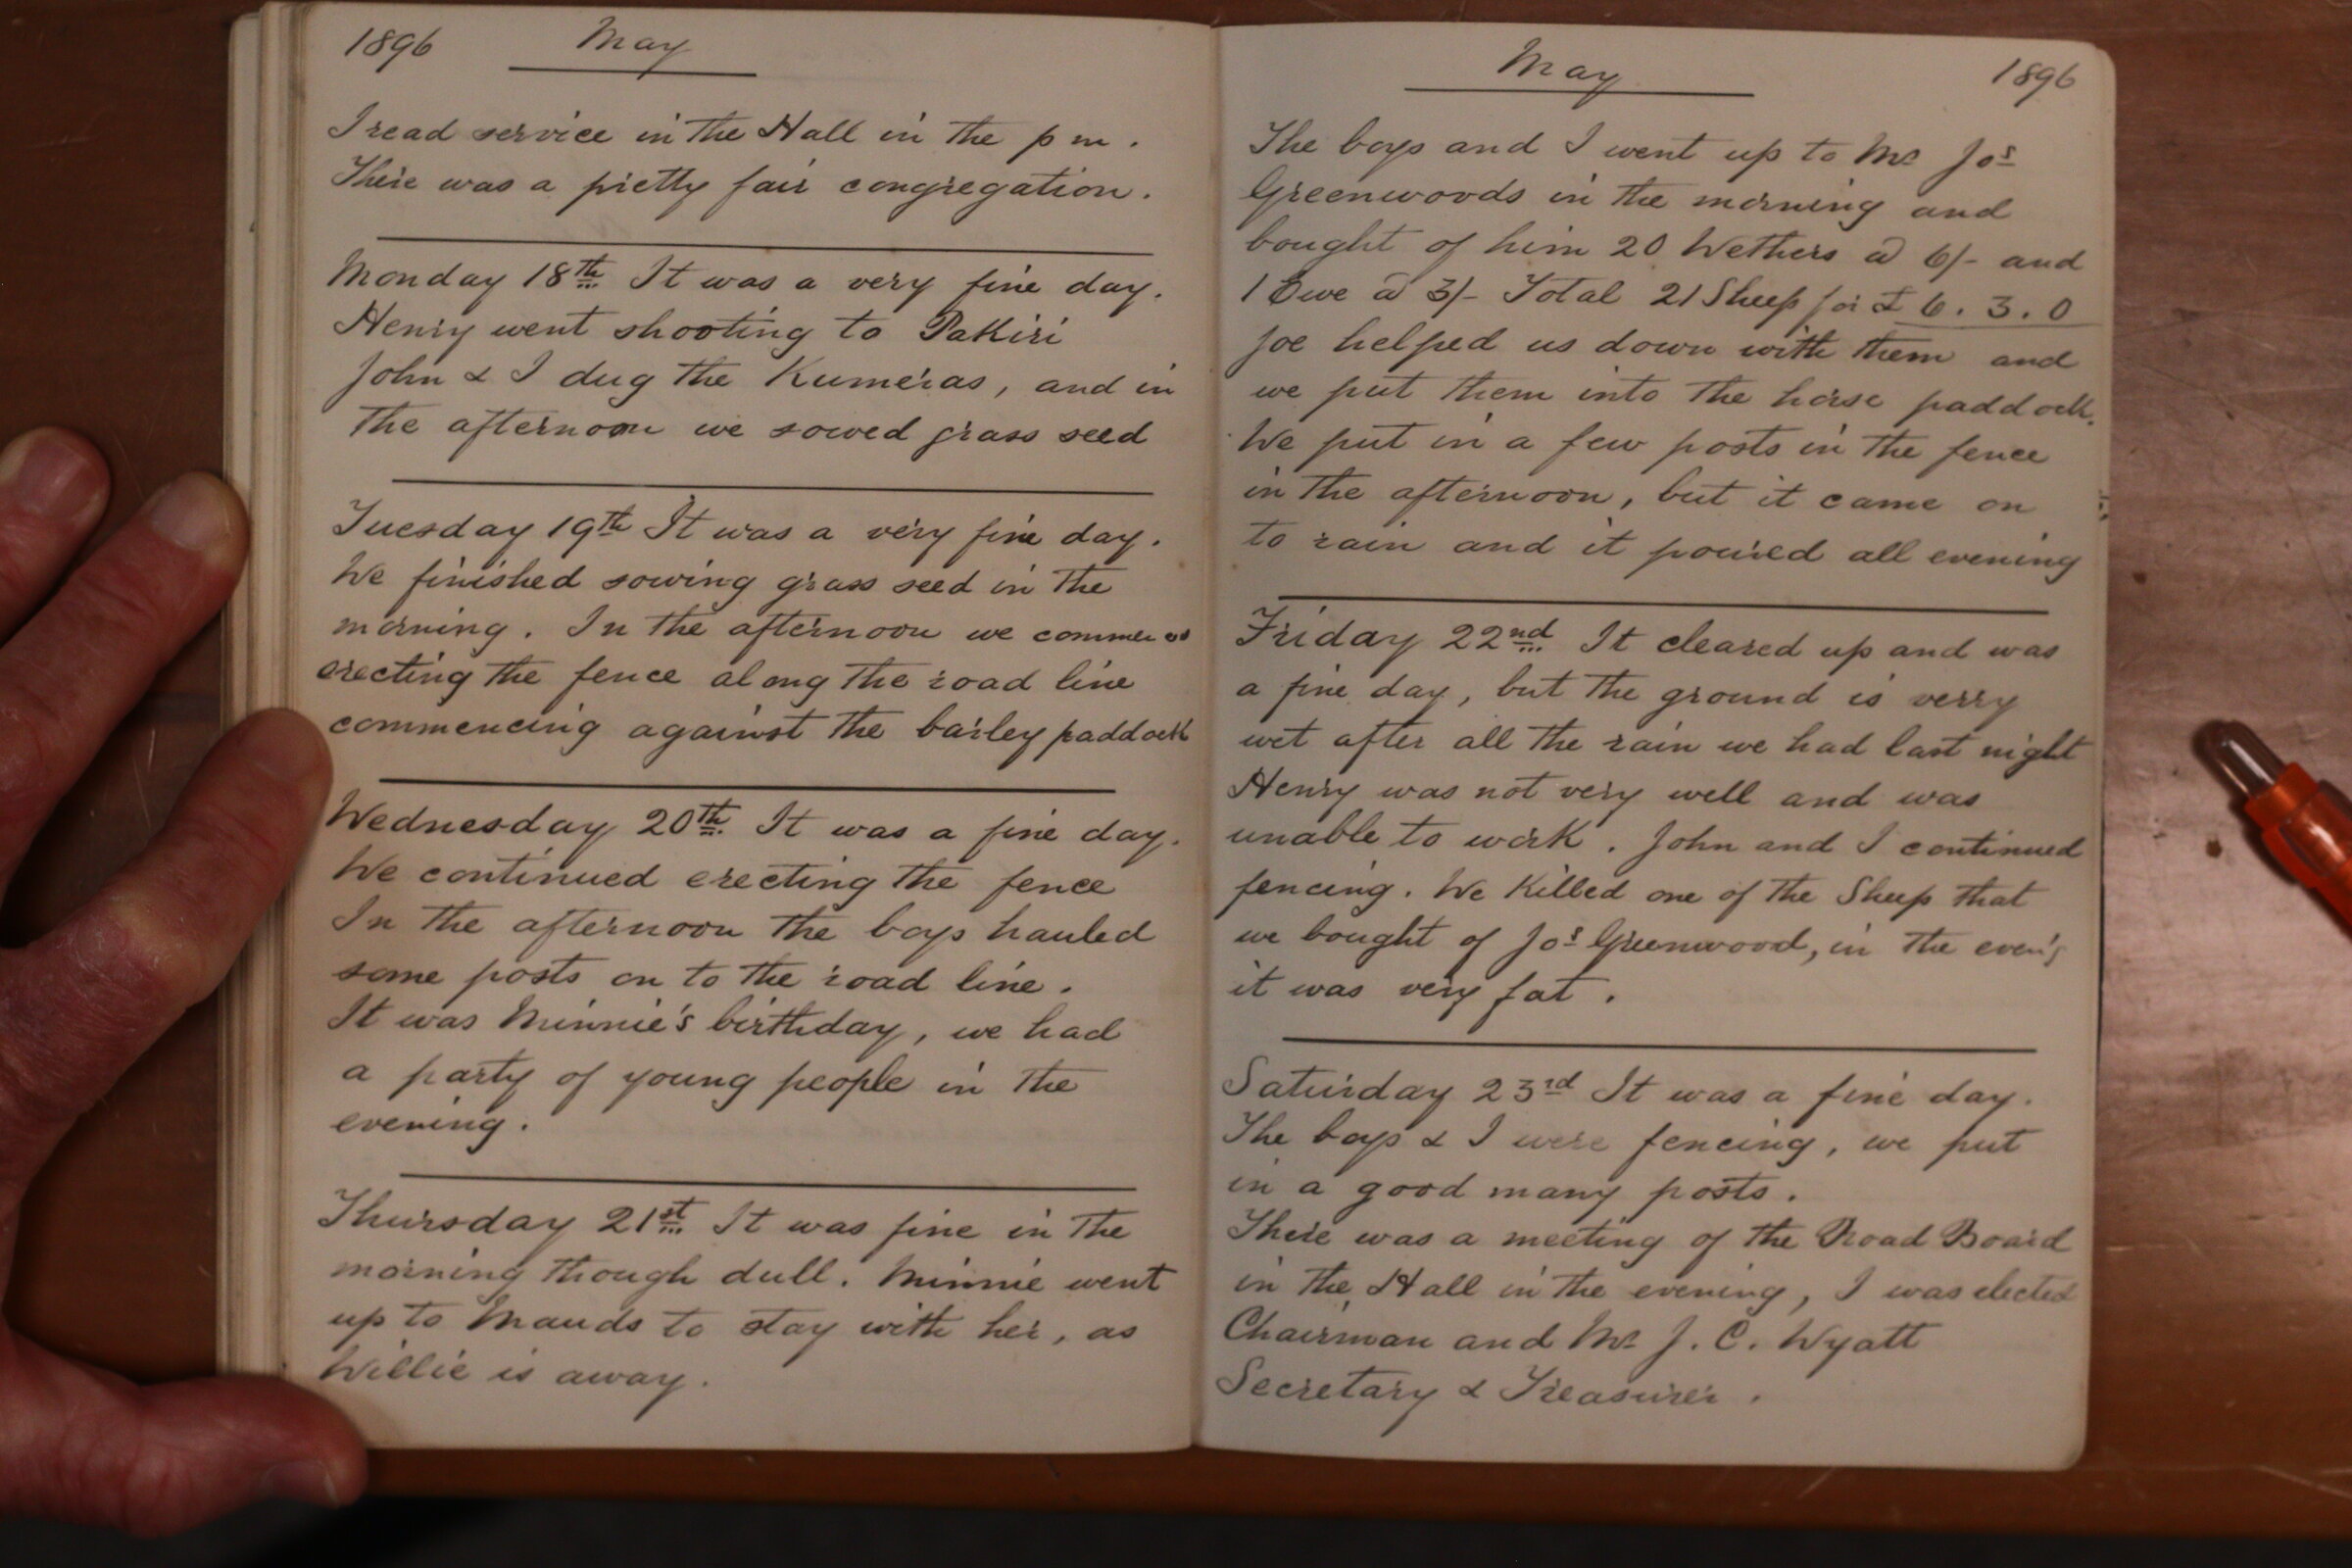 1896 May
I read service in the Hall in the p m .
There was a pretty fair congregation .
Monday 18th It was a very fine day .
Henry went shooting to Pakiri
John & I dug the Kumeras , and in
the afternoon we sowed grass seed
Tuesday 19th It was a very fine day .
We finished sowing grass seed in the
morning . In the afternoon we
erecting the fence along the road line
commencing against the barley paddock
Wednesday 20th It was a fine day .
We continued erecting the fence
In the afternoon the boys hauled
some posts on to the road line .
It was Minnie's birthday , we had
a party of young people in the
evening .
Thursday 21st It was fine in the
morning though dull . Minnie went
up to Mauds to stay with her , as
Willie is away .
May 1896
The boys and I went up to Mr Jos
Greenwoods in the morning and
bought of him 20 Wethers @ 6/- and
1 Ewe @ 3/- Total 21 Sheep for £ 6 . 3 . 0
Joe helped us down with them and
we put them into the horse paddock .
We put in a few posts in the fence
in the afternoon , but it came on
to rain and it poured all evening
Friday 22nd It cleared up and was
a fine day , but the ground is verry
wet after all the rain we had last night
Henry was not very well and was
unable to work . John and I continued
fencing . We Killed one of the Sheep that
we bought of Jos Greenwood , in the even'g
it was very fat .
Saturday 23rd It was a fine day .
The boys & I were fencing , we put
in a good many posts .
There was a meeting of the Road Board
in the Hall in the evening , I was elected
Chairman and Mr J . C . Wyatt
Secretary & Treasurer .